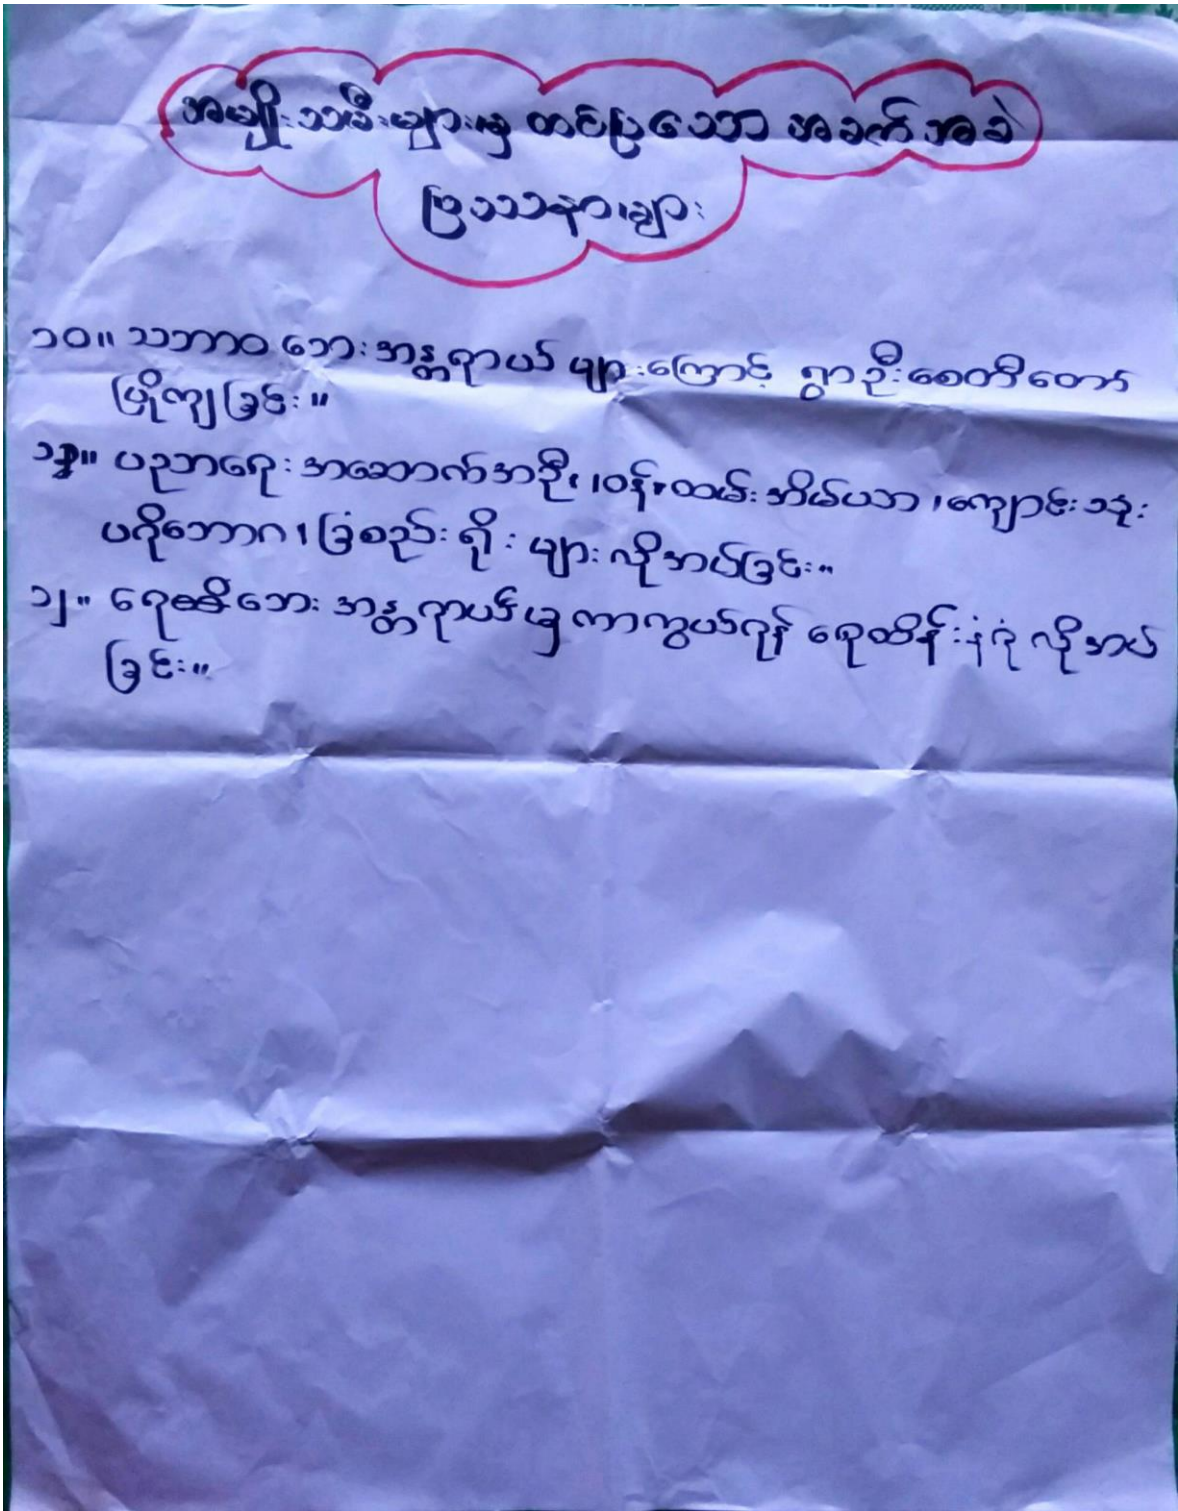 အမျိုးသမီးများမှ တင်ပြသော အခက်အခဲ
ပြဿနာများ
၁၀။ သဘာဝ ဘေးအန္တရာယ် များကြောင့် ရွာဦးစေတီတော်
ပြိုကျခြင်း။
၁၁။ ပညာရေး အဆောက်အဦ၊ ဝန်ထမ်းအိမ်ယာ၊ ကျောင်းသုံး
ပရိဘောဂ၊ ခြံစည်းရိုး များ လိုအပ်ခြင်း။
၁၂။ ရေဆိုးဘေး အန္တရာယ်မှ ကာကွယ်ရန် ရေထိန်းနံရံ လိုအပ်
ခြင်း။